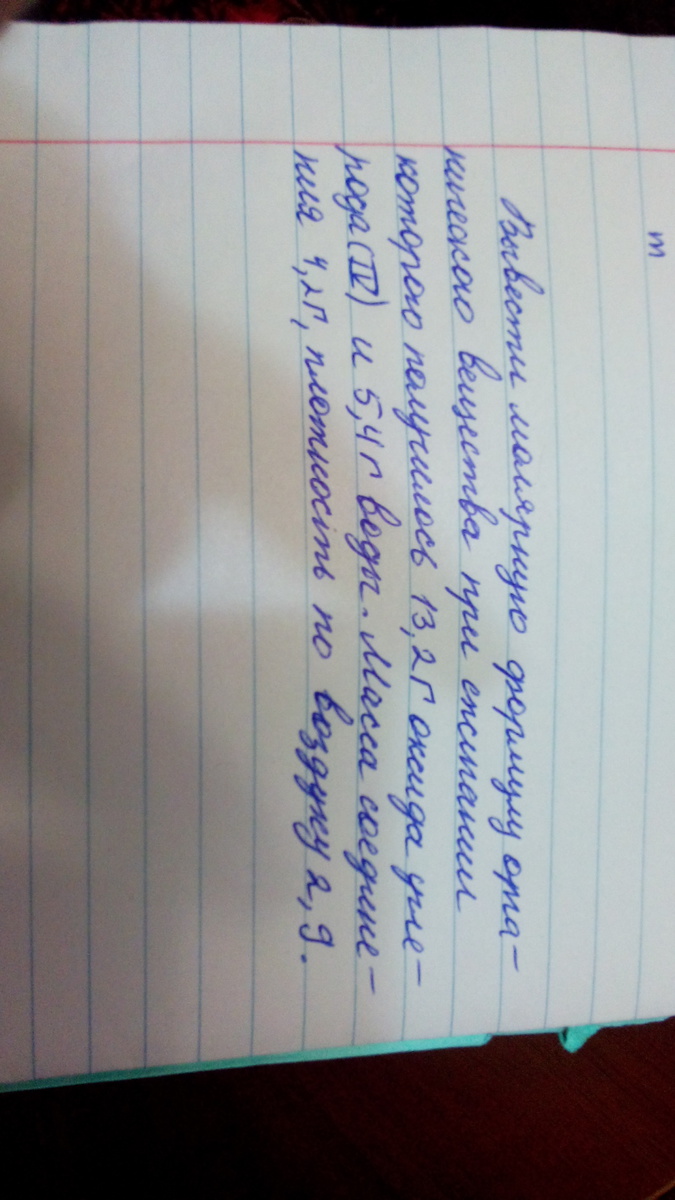 m
Вывести молярную формулу орга-
нического вещества при сжигании
которого получилось 13,2 г оксида угле-
рода (IV) и 5,4 г воды. Масса соедине-
ния 4,2 г, плотность по воздуху 2,9.